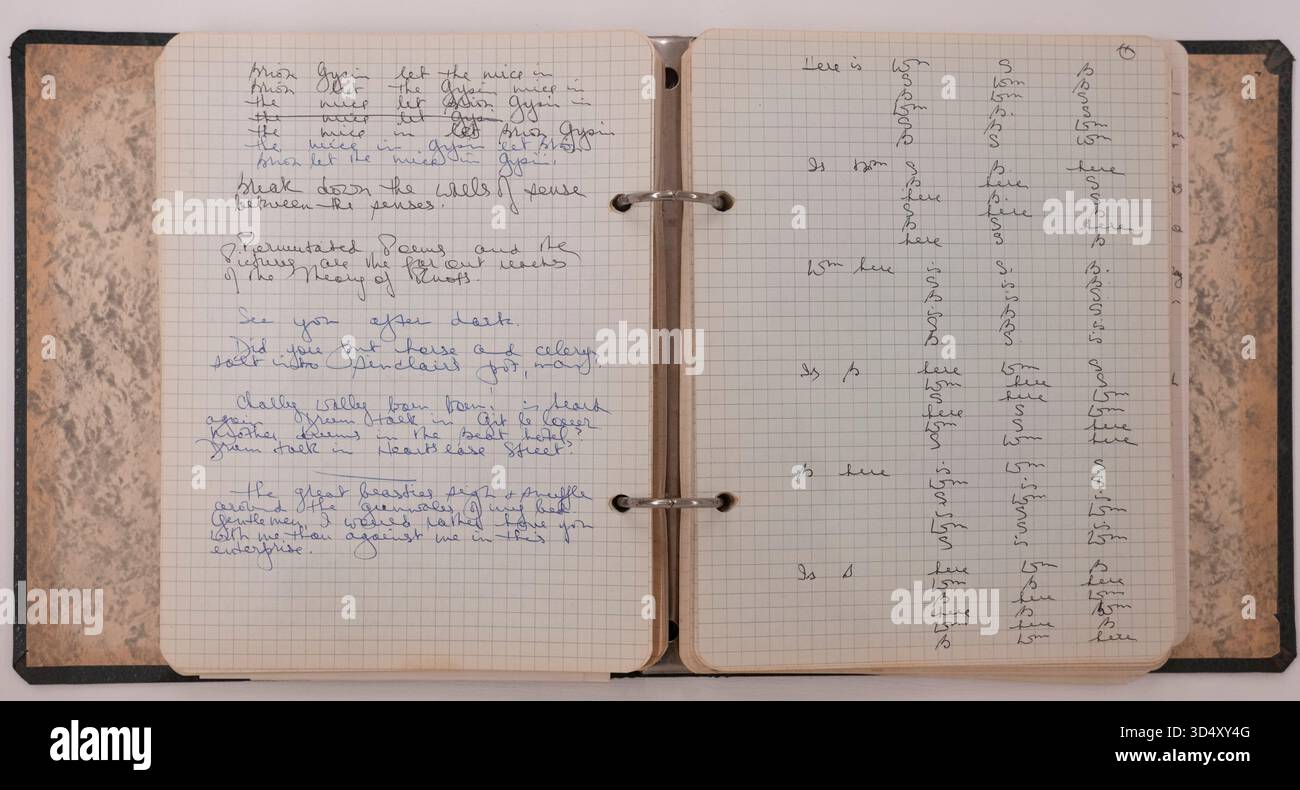 Brion Gysin let the mice in
Brion let the Gysin mice in
the mice let Brion Gysin in
the mice let Gysin
the mice in let Brion Gysin
the mice in Gysin let Brion
Brion let the mice in Gysin.
Break down the walls of sense
between the senses.
Permutated Poems and the
Pictures are the far out reaches
of the Theory of Knots.
See you after dark.
Did you put horse and celery
salt into Sinclairs pot, man?
Chally Wally bom bom, is back
again. Dream talk in Git le Coeur
Brother dreams in the Beat hotel?
Dream talk in Heartsease Street?
The great beasties sigh & snuffle
around the gunwales of my bed
Gentlemen, I would rather have you
with me than against me in this
enterprise.
Here is Wm S B
S Wm B
B Wm S
Wm B. S
S B Wm
B S Wm
Is Wm S B. here
B here S
here B. S
S here B
B S here
here S B
Wm here is S. B.
S is B.
B is S
is B S
S B. is
B S is
Is B here Wm S
Wm here S
S here Wm
here S Wm
Wm S here
S Wm here
B here is Wm S
Wm is S
S Wm is
is S Wm
Wm S is
S is Wm
Is S here Wm B
Wm B here
B here Wm
here B Wm
Wm here B
B Wm here
alamy
Image ID: 3D4XY4G
www.alamy.com